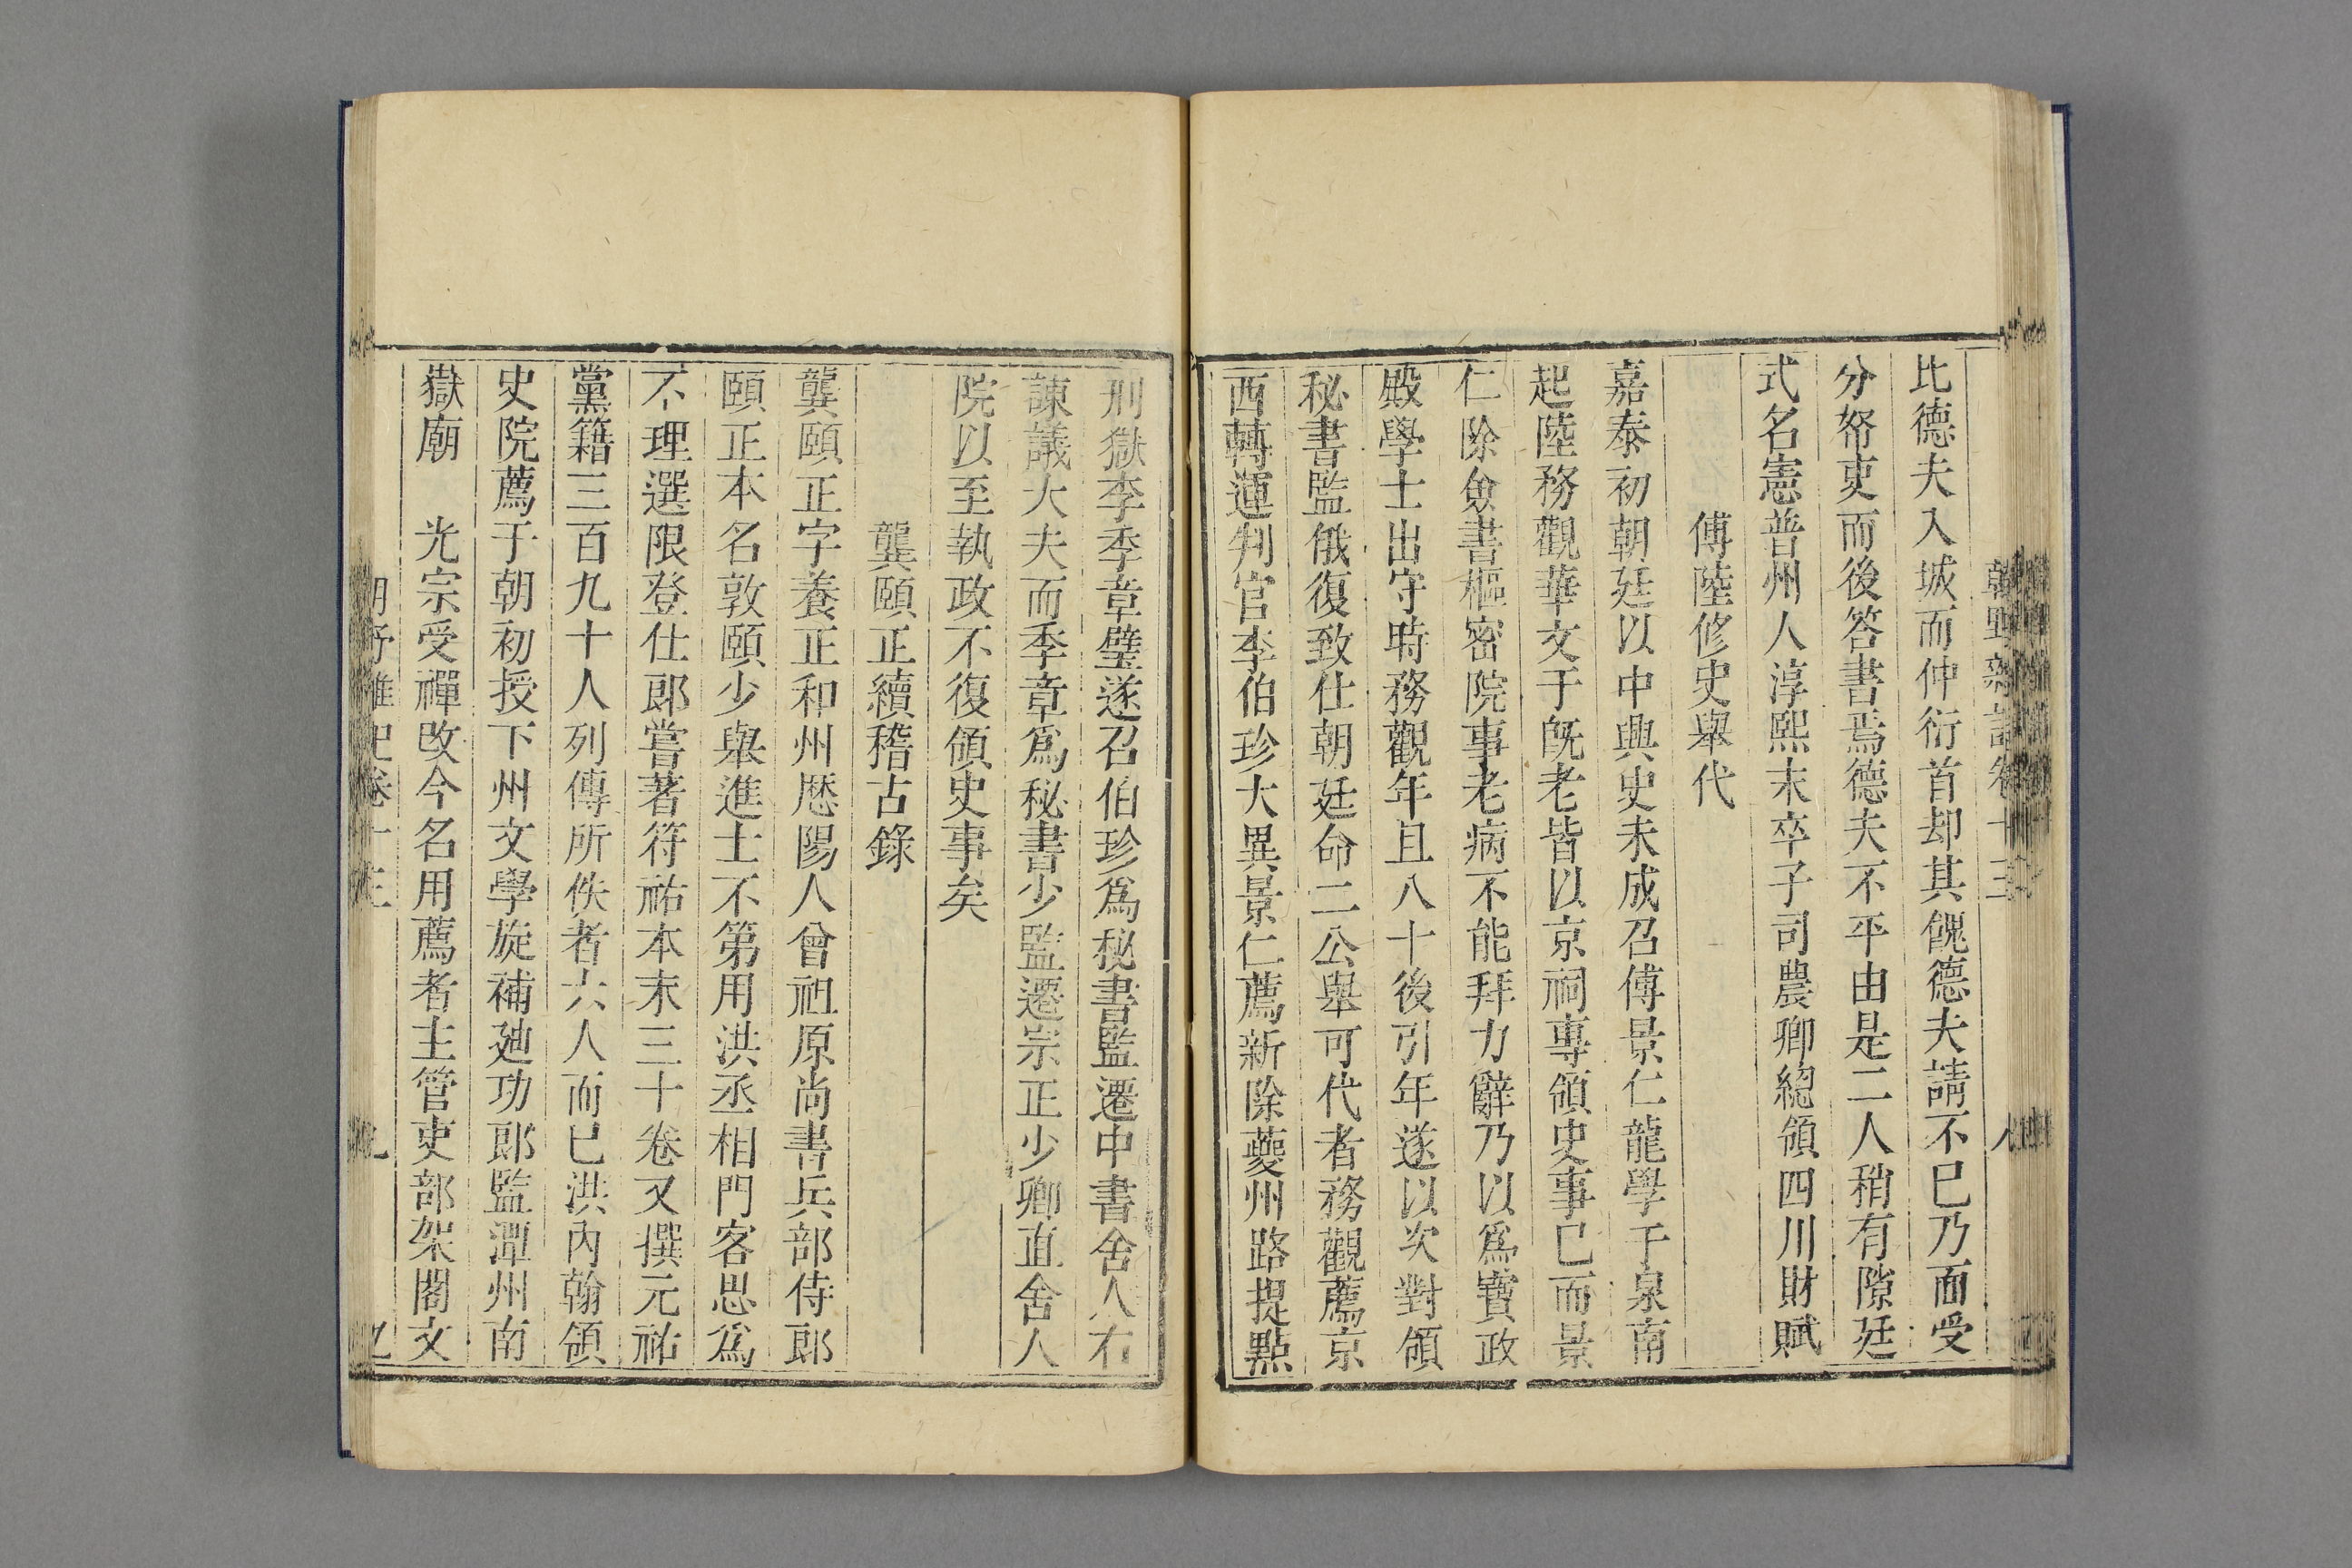 比德夫入城而仲衍首却其餽德夫請不巳乃面受
分帑吏而後答書焉德夫不平由是二人稍有隙廷
式名憲普州人淳熙末卒子司農卿總領四川財賦
傅陸修史舉代
嘉泰初朝廷以中興史未成召傅景仁龍學于泉南
起陸務觀華文于旣老皆以京祠專領史事巳而景
仁除僉書樞密院事老病不能拜力辭乃以爲寶政
殿學士出守時務觀年且八十後引年遂以次對領
秘書監俄復致仕朝廷命二公舉可代者務觀薦京
西轉運判官李伯珍大異景仁薦新除夔州路提點
刑獄李季章璧遂召伯珍爲秘書監遷中書舍人右
諫議大夫而季章爲秘書少監遷宗正少卿直舍人
院以至執政不復領史事矣
龔頤正續稽古錄
龔頤正字養正和州歷陽人曾祖原尚書兵部侍郎
頤正本名敦頤少舉進士不第用洪丞相門客恩爲
不理選限登仕郎嘗著符祐本末三十卷又撰元祐
黨籍三百九十人列傳所佚者六人而巳洪內翰領
史院薦于朝初授下州文學旋補廸功郎監潭州南
嶽廟　光宗受禪改今名用薦者主管吏部架閣文